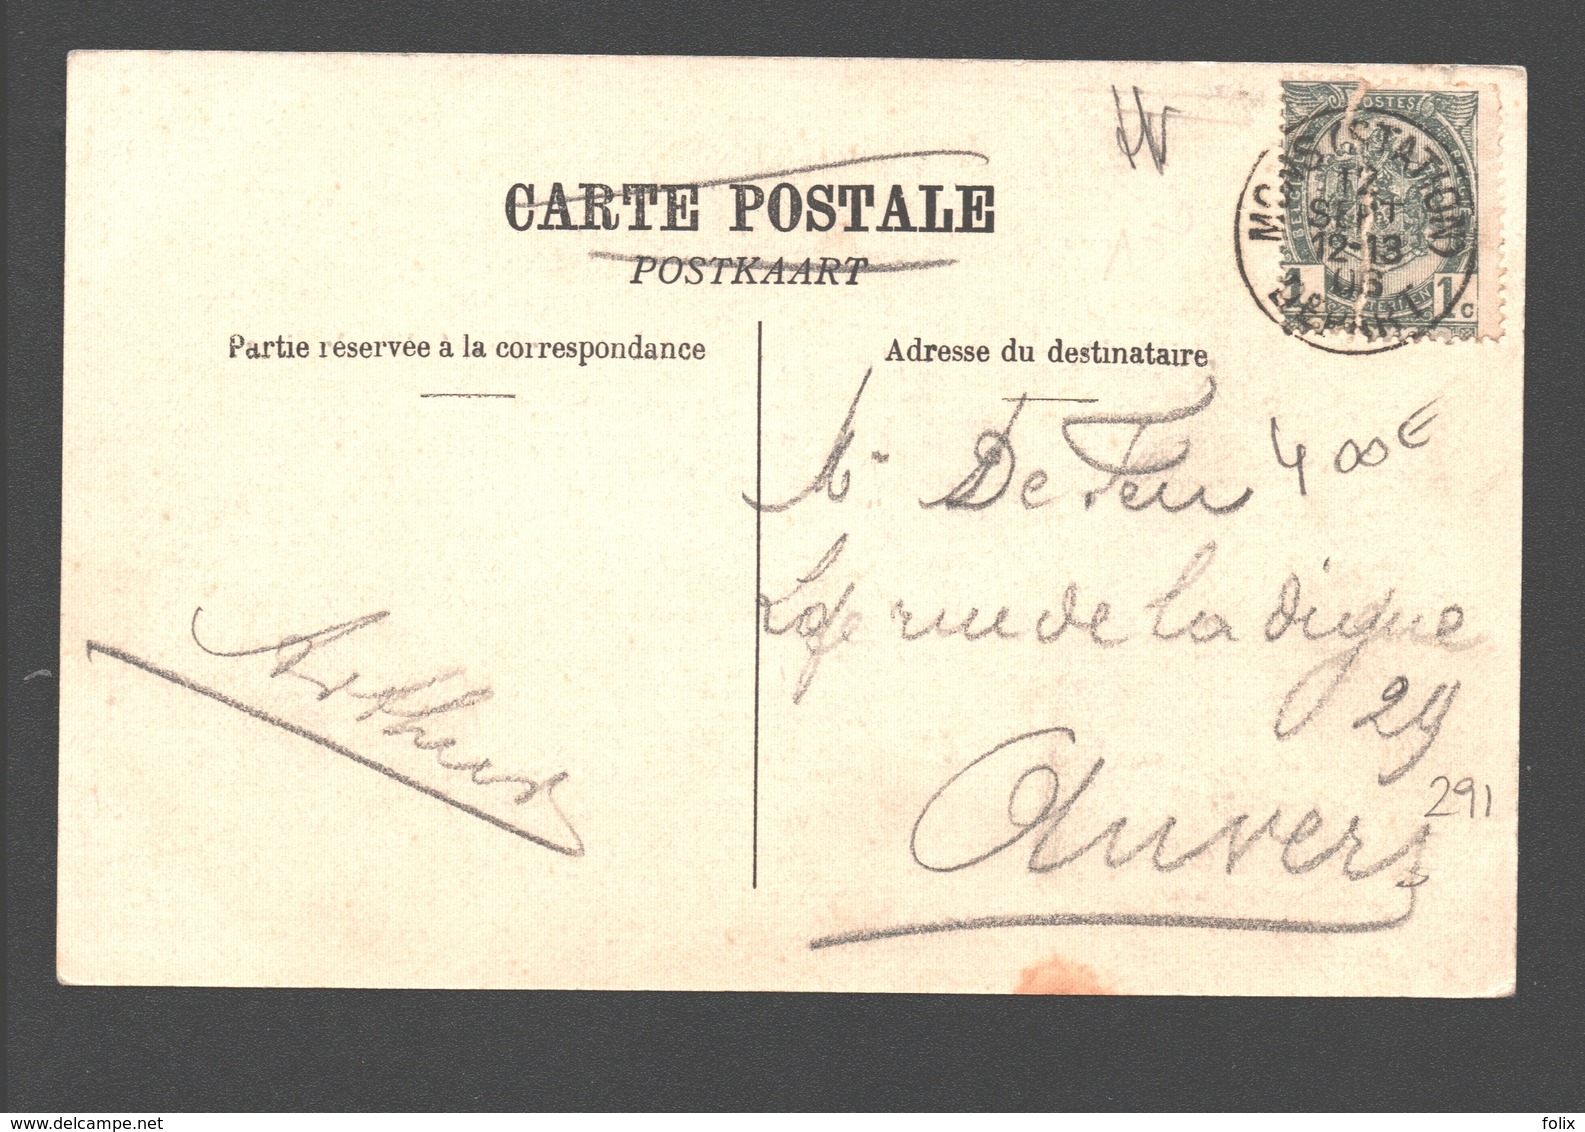 POSTES
MONS (STATION)
17
SEPT
12-13
06
DÉPART
1 1c
CARTE POSTALE
POSTKAART
Partie réservée à la correspondance
Adresse du destinataire
Mr De Feu 400€
rue de la digue
29
291
Anvers
Arthur
www.delcampe.net
folix